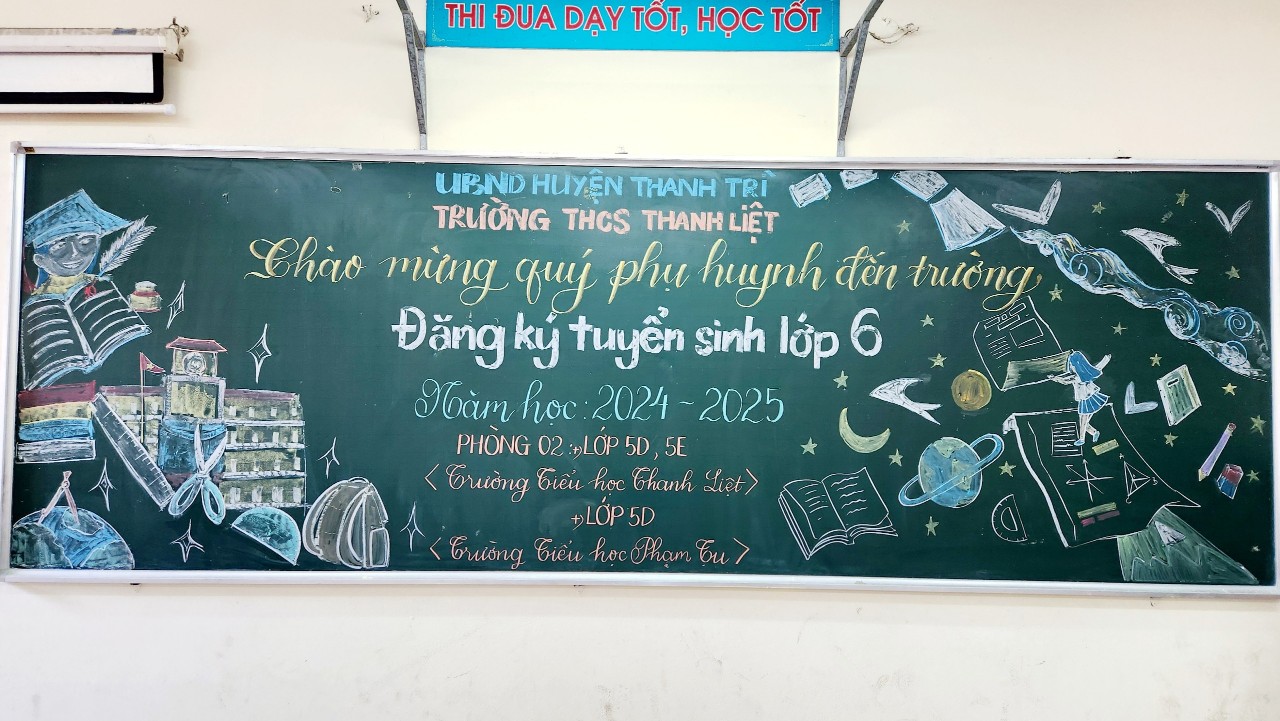 THI ĐUA DẠY TỐT, HỌC TỐT
UBND HUYỆN THANH TRÌ
TRƯỜNG THCS THANH LIỆT
Chào mừng quý phụ huynh đến trường
Đăng ký tuyển sinh lớp 6
Năm học: 2024 - 2025
PHÒNG 02 :+) LỚP 5D, 5E
< Trường Tiểu học Thanh Liệt >
+) LỚP 5D
< Trường Tiểu học Phạm Tu >